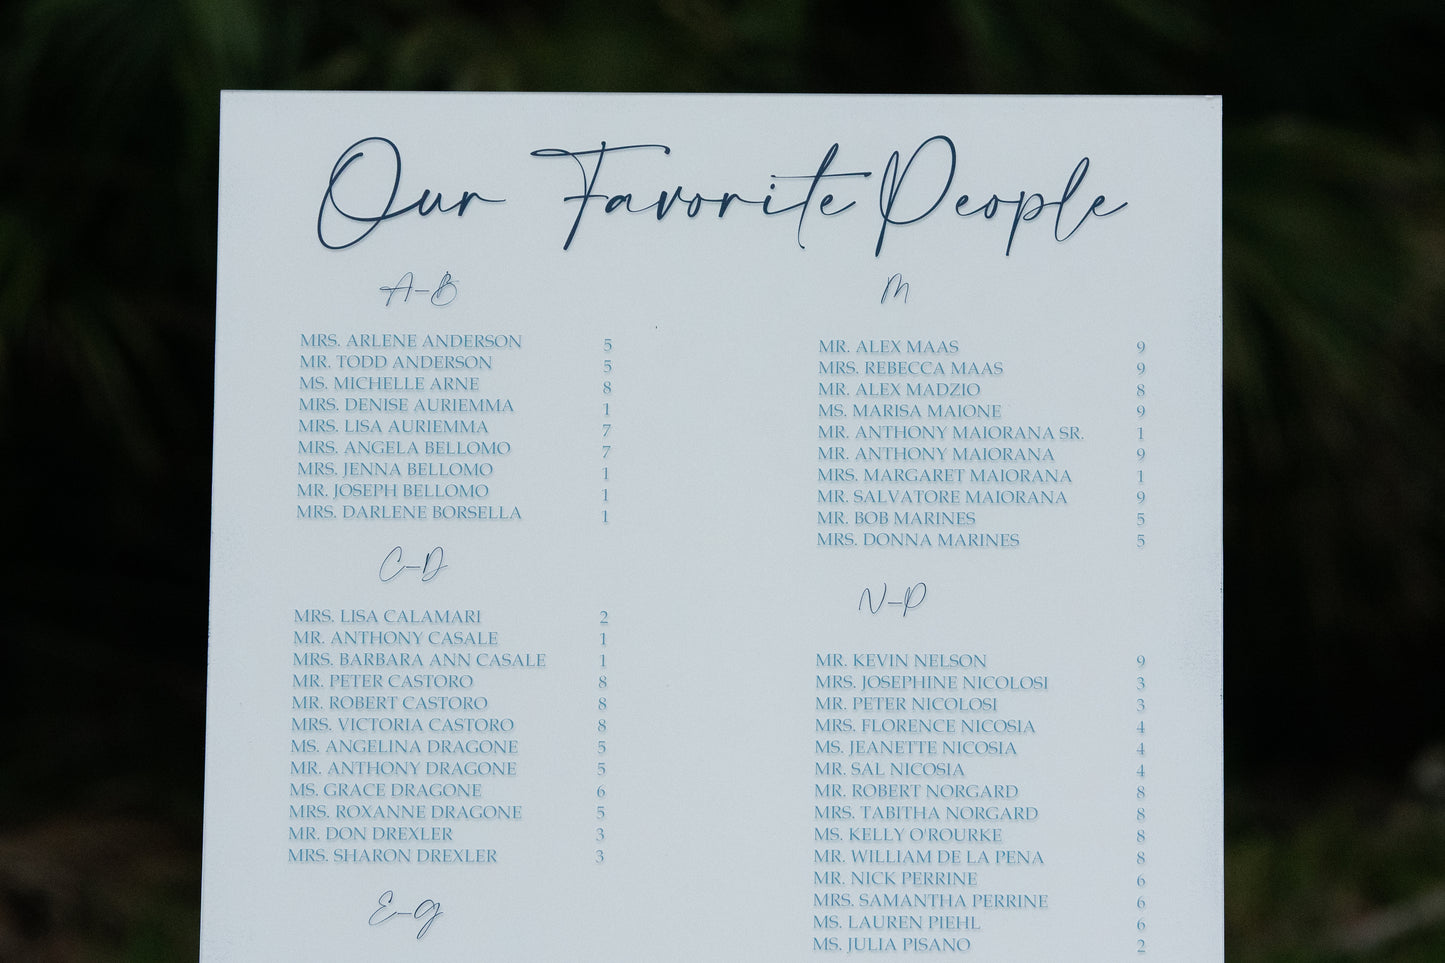 Our Favorite People
A-B
MRS. ARLENE ANDERSON 5
MR. TODD ANDERSON 5
MS. MICHELLE ARNE 8
MRS. DENISE AURIEMMA 1
MRS. LISA AURIEMMA 7
MRS. ANGELA BELLOMO 7
MRS. JENNA BELLOMO 1
MR. JOSEPH BELLOMO 1
MRS. DARLENE BORSELLA 1
C-D
MRS. LISA CALAMARI 2
MR. ANTHONY CASALE 1
MRS. BARBARA ANN CASALE 1
MR. PETER CASTORO 8
MR. ROBERT CASTORO 8
MRS. VICTORIA CASTORO 8
MS. ANGELINA DRAGONE 5
MR. ANTHONY DRAGONE 5
MS. GRACE DRAGONE 6
MRS. ROXANNE DRAGONE 5
MR. DON DREXLER 3
MRS. SHARON DREXLER 3
E-G
M
MR. ALEX MAAS 9
MRS. REBECCA MAAS 9
MR. ALEX MADZIO 8
MS. MARISA MAIONE 9
MR. ANTHONY MAIORANA SR. 1
MR. ANTHONY MAIORANA 9
MRS. MARGARET MAIORANA 1
MR. SALVATORE MAIORANA 9
MR. BOB MARINES 5
MRS. DONNA MARINES 5
N-P
MR. KEVIN NELSON 9
MRS. JOSEPHINE NICOLOSI 3
MR. PETER NICOLOSI 3
MRS. FLORENCE NICOSIA 4
MS. JEANETTE NICOSIA 4
MR. SAL NICOSIA 4
MR. ROBERT NORGARD 8
MRS. TABITHA NORGARD 8
MS. KELLY O'ROURKE 8
MR. WILLIAM DE LA PENA 8
MR. NICK PERRINE 6
MRS. SAMANTHA PERRINE 6
MS. LAUREN PIEHL 6
MS. JULIA PISANO 2